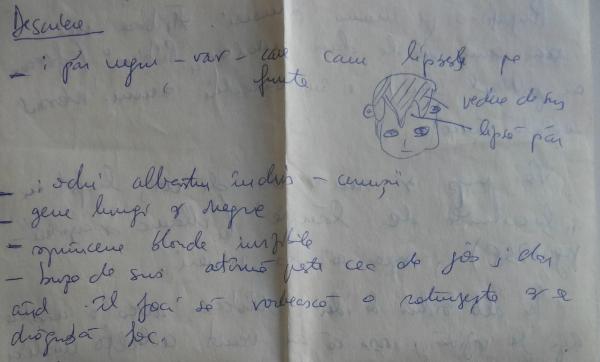 Descriere
- păr negru - var - care cam lipsește pe
frunte
vedere de sus
lipsă păr
- ochi albaștri închis - cenușii
- gene lungi și negre
- sprâncene blonde invizibile
- buza de sus atârnă peste cea de jos, dar
când îl faci să vorbească o rotunjește și e
drăguță foc